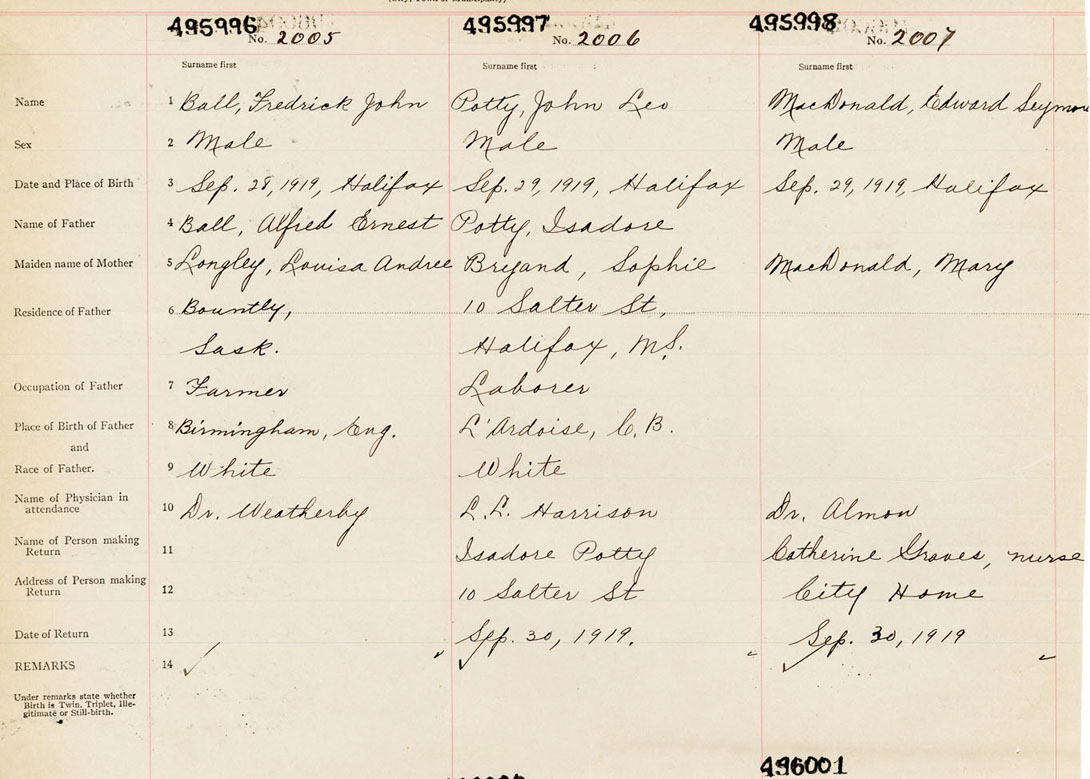 (City, Town or Municipality)
495996 495997 495998
No. 2005 No. 2006 No. 2007
Surname first Surname first Surname first
Name 1 Ball, Fredrick John Potty, John Leo MacDonald, Edward Seymou
Sex 2 Male Male Male
Date and Place of Birth 3 Sep. 28, 1919, Halifax Sep. 29, 1919, Halifax Sep. 29, 1919, Halifax
Name of Father 4 Ball, Alfred Ernest Potty, Isadore
Maiden name of Mother 5 Longley, Louisa Andree Bryand, Sophie MacDonald, Mary
Residence of Father 6 Bountly, 10 Salter St,
Sask. Halifax, N.S.
Occupation of Father 7 Farmer Laborer
Place of Birth of Father 8 Birmingham, Eng. L'Ardoise, C.B.
and
Race of Father. 9 White White
Name of Physician in
attendance 10 Dr. Weatherby L.L. Harrison Dr. Almon
Name of Person making
Return 11 Isadore Potty Catherine Graves, nurse
Address of Person making
Return 12 10 Salter St City Home
Date of Return 13 Sep. 30, 1919. Sep. 30, 1919
REMARKS 14
Under remarks state whether
Birth is Twin, Triplet, Ille-
gitimate or Still-birth.
496001